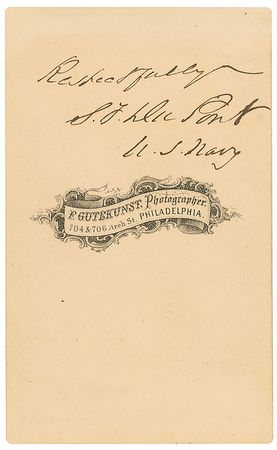 Respectfully
S. F. Du Pont
U. S. Navy
F. GUTEKUNST. Photographer.
704 & 706 Arch St. PHILADELPHIA.